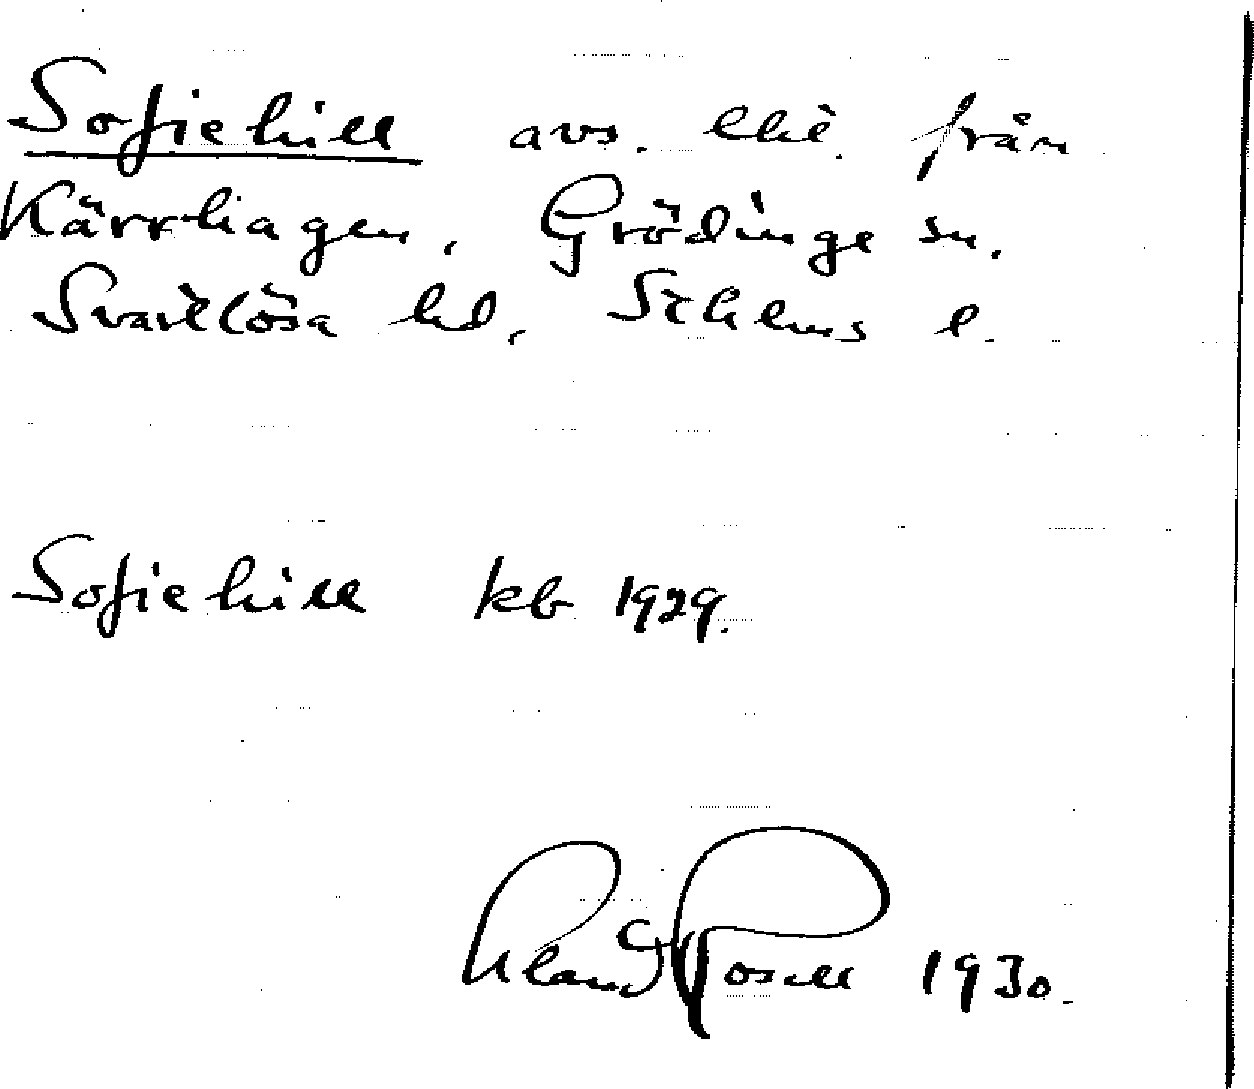 Sofiehill avs. lht. från
Kärrhagen, Grödinge sn.
Svartlösa hd, Sthlms l.
Sofiehill kb 1929.
1930.